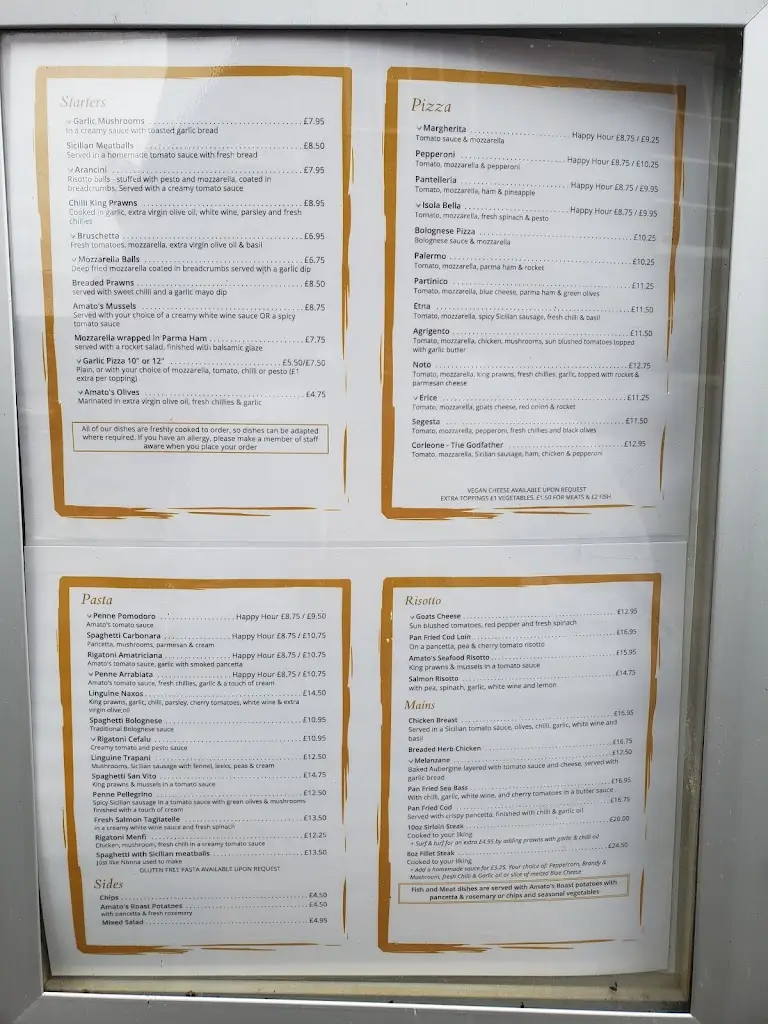 Starters
v Garlic Mushrooms £7.95
In a creamy sauce with toasted garlic bread
Sicilian Meatballs £8.50
Served in a homemade tomato sauce with fresh bread
v Arancini £7.95
Risotto balls - stuffed with pesto and mozzarella, coated in
breadcrumbs. Served with a creamy tomato sauce
Chilli King Prawns £8.95
Cooked in garlic, extra virgin olive oil, white wine, parsley and fresh
chillies
v Bruschetta £6.95
Fresh tomatoes, mozzarella, extra virgin olive oil & basil
v Mozzarella Balls £6.75
Deep fried mozzarella coated in breadcrumbs served with a garlic dip
Breaded Prawns £8.50
served with sweet chilli and a garlic mayo dip
Amato's Mussels £8.75
Served with your choice of a creamy white wine sauce OR a spicy
tomato sauce
Mozzarella wrapped in Parma Ham £7.75
served with a rocket salad, finished with balsamic glaze
v Garlic Pizza 10" or 12" £5.50/£7.50
Plain, or with your choice of mozzarella, tomato, chilli or pesto (£1
extra per topping)
v Amato's Olives £4.75
Marinated in extra virgin olive oil, fresh chillies & garlic
All of our dishes are freshly cooked to order, so dishes can be adapted
where required. If you have an allergy, please make a member of staff
aware when you place your order
Pizza
v Margherita Happy Hour £8.75 / £9.25
Tomato sauce & mozzarella
Pepperoni Happy Hour £8.75 / £10.25
Tomato, mozzarella & pepperoni
Pantelleria Happy Hour £8.75 / £9.95
Tomato, mozzarella, ham & pineapple
v Isola Bella Happy Hour £8.75 / £9.95
Tomato, mozzarella, fresh spinach & pesto
Bolognese Pizza £10.25
Bolognese sauce & mozzarella
Palermo £10.25
Tomato, mozzarella, parma ham & rocket
Partinico £11.25
Tomato, mozzarella, blue cheese, parma ham & green olives
Etna £11.50
Tomato, mozzarella, spicy Sicilian sausage, fresh chilli & basil
Agrigento £11.50
Tomato, mozzarella, chicken, mushrooms, sun blushed tomatoes topped
with garlic butter
Noto £12.75
Tomato, mozzarella, king prawns, fresh chillies, garlic, topped with rocket &
parmesan cheese
v Erice £11.25
Tomato, mozzarella, goats cheese, red onion & rocket
Segesta £11.50
Tomato, mozzarella, pepperoni, fresh chillies and black olives
Corleone - The Godfather £12.95
Tomato, mozzarella, Sicilian sausage, ham, chicken & pepperoni
VEGAN CHEESE AVAILABLE UPON REQUEST
EXTRA TOPPINGS £1 VEGETABLES, £1.50 FOR MEATS & £2 FISH
Pasta
v Penne Pomodoro Happy Hour £8.75 / £9.50
Amato's tomato sauce
Spaghetti Carbonara Happy Hour £8.75 / £10.75
Pancetta, mushrooms, parmesan & cream
Rigatoni Amatriciana Happy Hour £8.75 / £10.75
Amato's tomato sauce, garlic with smoked pancetta
v Penne Arrabiata Happy Hour £8.75 / £10.75
Amato's tomato sauce, fresh chillies, garlic & a touch of cream
Linguine Naxos £14.50
King prawns, garlic, chilli, parsley, cherry tomatoes, white wine & extra
virgin olive oil
Spaghetti Bolognese £10.95
Traditional Bolognese sauce
v Rigatoni Cefalu £10.95
Creamy tomato and pesto sauce
Linguine Trapani £12.50
Mushrooms, Sicilian sausage with fennel, leeks, peas & cream
Spaghetti San Vito £14.75
King prawns & mussels in a tomato sauce
Penne Pellegrino £12.50
Spicy Sicilian sausage in a tomato sauce with green olives & mushrooms
finished with a touch of cream
Fresh Salmon Tagliatelle £13.50
in a creamy white wine sauce and fresh spinach
Rigatoni Menfi £12.25
Chicken, mushroom, fresh chilli in a creamy tomato sauce
Spaghetti with Sicilian meatballs £13.50
Just like Nonna used to make
GLUTEN FREE PASTA AVAILABLE UPON REQUEST
Sides
Chips £4.50
Amato's Roast Potatoes £4.50
with pancetta & fresh rosemary
Mixed Salad £4.95
Risotto
v Goats Cheese £12.95
Sun blushed tomatoes, red pepper and fresh spinach
Pan Fried Cod Loin £16.95
On a pancetta, pea & cherry tomato risotto
Amato's Seafood Risotto £15.95
King prawns & mussels in a tomato sauce
Salmon Risotto £14.75
with pea, spinach, garlic, white wine and lemon
Mains
Chicken Breast £16.95
Served in a Sicilian tomato sauce, olives, chilli, garlic, white wine and
basil
Breaded Herb Chicken £16.75
v Melanzane £12.50
Baked Aubergine layered with tomato sauce and cheese, served with
garlic bread
Pan Fried Sea Bass £16.95
With chilli, garlic, white wine, and cherry tomatoes in a butter sauce
Pan Fried Cod £16.75
Served with crispy pancetta, finished with chilli & garlic oil
10oz Sirloin Steak £20.00
Cooked to your liking
+ Surf & turf for an extra £4.95 by adding prawns with garlic & chilli oil
8oz Fillet Steak £24.50
Cooked to your liking
+ Add a homemade sauce for £3.25. Your choice of: Peppercorn, Brandy &
Mushroom, fresh Chilli & Garlic oil or slice of melted Blue Cheese
Fish and Meat dishes are served with Amato's Roast potatoes with
pancetta & rosemary or chips and seasonal vegetables